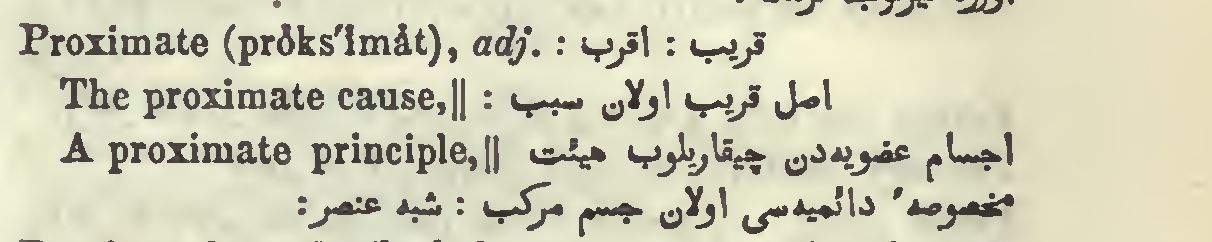 Proximate (prŏks′ĭmåt), adj. : قریب : اقرب
The proximate cause,|| : اصل قریب اولان سبب
A proximate principle,|| اجسام عضویه‌دن چیقاریلوب هیئت
مخصوصهٔ دائمیه‌سی اولان جسم مرکب : شبه عنصر :